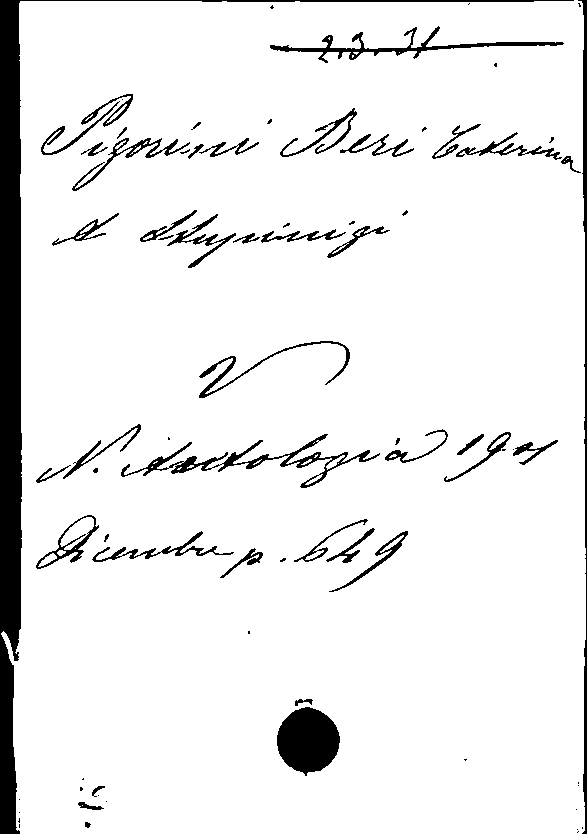 2.3.31
Pigorini Beri Caterina
A Stupinigi
V
N. Antologia 1901
Dicembre p. 649